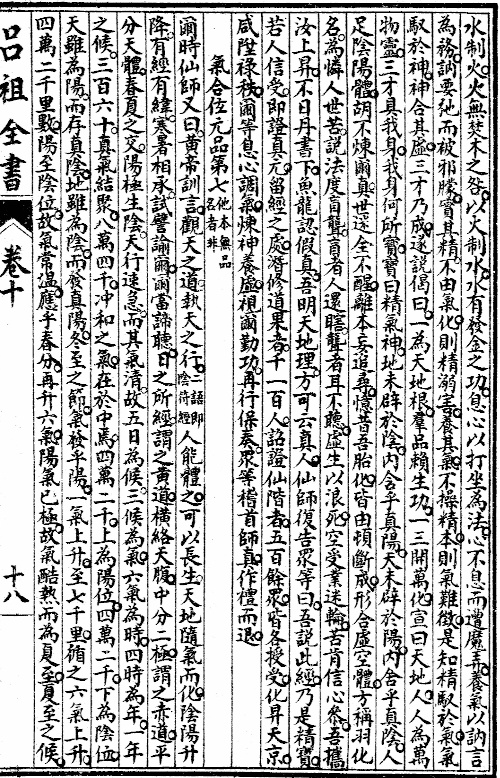 水制火火無焚木之咎以火制水水有發金之功息心以打坐為法心不息而遭魔弄養氣以訥言
為務訥要弛而被邪朦實其精不由氣化則精溺害養其氣不操精本則氣難徵是知精馭於氣氣
馭於神神合其虛三才乃成遂說偈曰一為天地根羣品賴生功一三開萬化宣曰天地人人為萬
物靈三才具我身我身何所寶寶曰精氣神地未辟於陰內含乎真陽天未辟於陽內含乎真陰人
足陰陽體胡不煉爾真世迷全不醒離本妄追尋憶昔吾胎化皆由頓斷成形合虛空體方稱羽化
名為憐人世苦說法度盲聾盲者人還瞎聾者耳不聽虛生以浪死空受業迷輪苦肯信心叅吾攜
汝上昇不日丹書下魚龍認假真吾明天地理方可云真人仙師復告眾等曰吾說此經乃是精寶
若人信受即證真元留經之處潛修道果者千一百人詔證仙階者五百餘眾皆各授受化昇天京
咸陞祿秩爾等息心調氣煉神養虛視爾勤功再行保奏眾等稽首師真作禮而退
氣合位元品第七他本無品名者非
爾時仙師又曰黃帝訓言觀天之道執天之行二語即陰符經人能體之可以長生天地隨氣而化陰陽升
降有經有緯寒暑相承試譬諭爾爾當諦聽日之所經謂之黃道橫絡天腹中分二極謂之赤道平
分天體春夏之交陽極生陰天行速急而其氣清故五日為候三候為氣六氣為時四時為年一年
之候三百六十真氣結聚八萬四千冲和之氣在於中焉四萬二千上為陽位四萬二千下為陰位
天雖為陽而存真陰地雖為陰而發真陽冬至之節氣發乎陽一氣上升至七千里循之六氣上升
四萬二千里數陽至陰位故氣常溫應乎春分再升六氣陽氣已極故氣酷熱而為夏至夏至之候
呂祖全書
卷十
十八